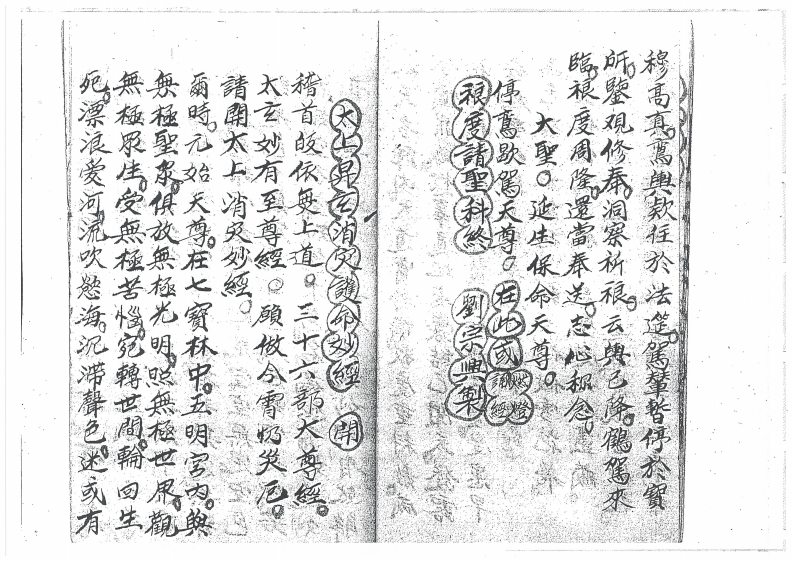 穆高真鸞輿欵住於法筵駕輦暫停於寶
所鑒观修奉洞察祈禳云輿已降鶴駕來
臨禳度周隆還當奉送志心稱念
大聖延生保命天尊
停鸾歇駕天尊在此或燃燈誦經
禳度請聖科終 劉宗興製
太上昇玄消災護命妙經 開
稽首皈依無上道三十六部大尊經
太玄妙有至尊經願做今霄禳災厄
請開太上消災妙經
爾時元始天尊在七寶林中五明宮內與
無極聖衆俱放無極光明照無極世界觀
無極眾生受無極苦惱宛轉世間輪回生
死漂浪愛河流吹慾海沉滯聲色迷或有